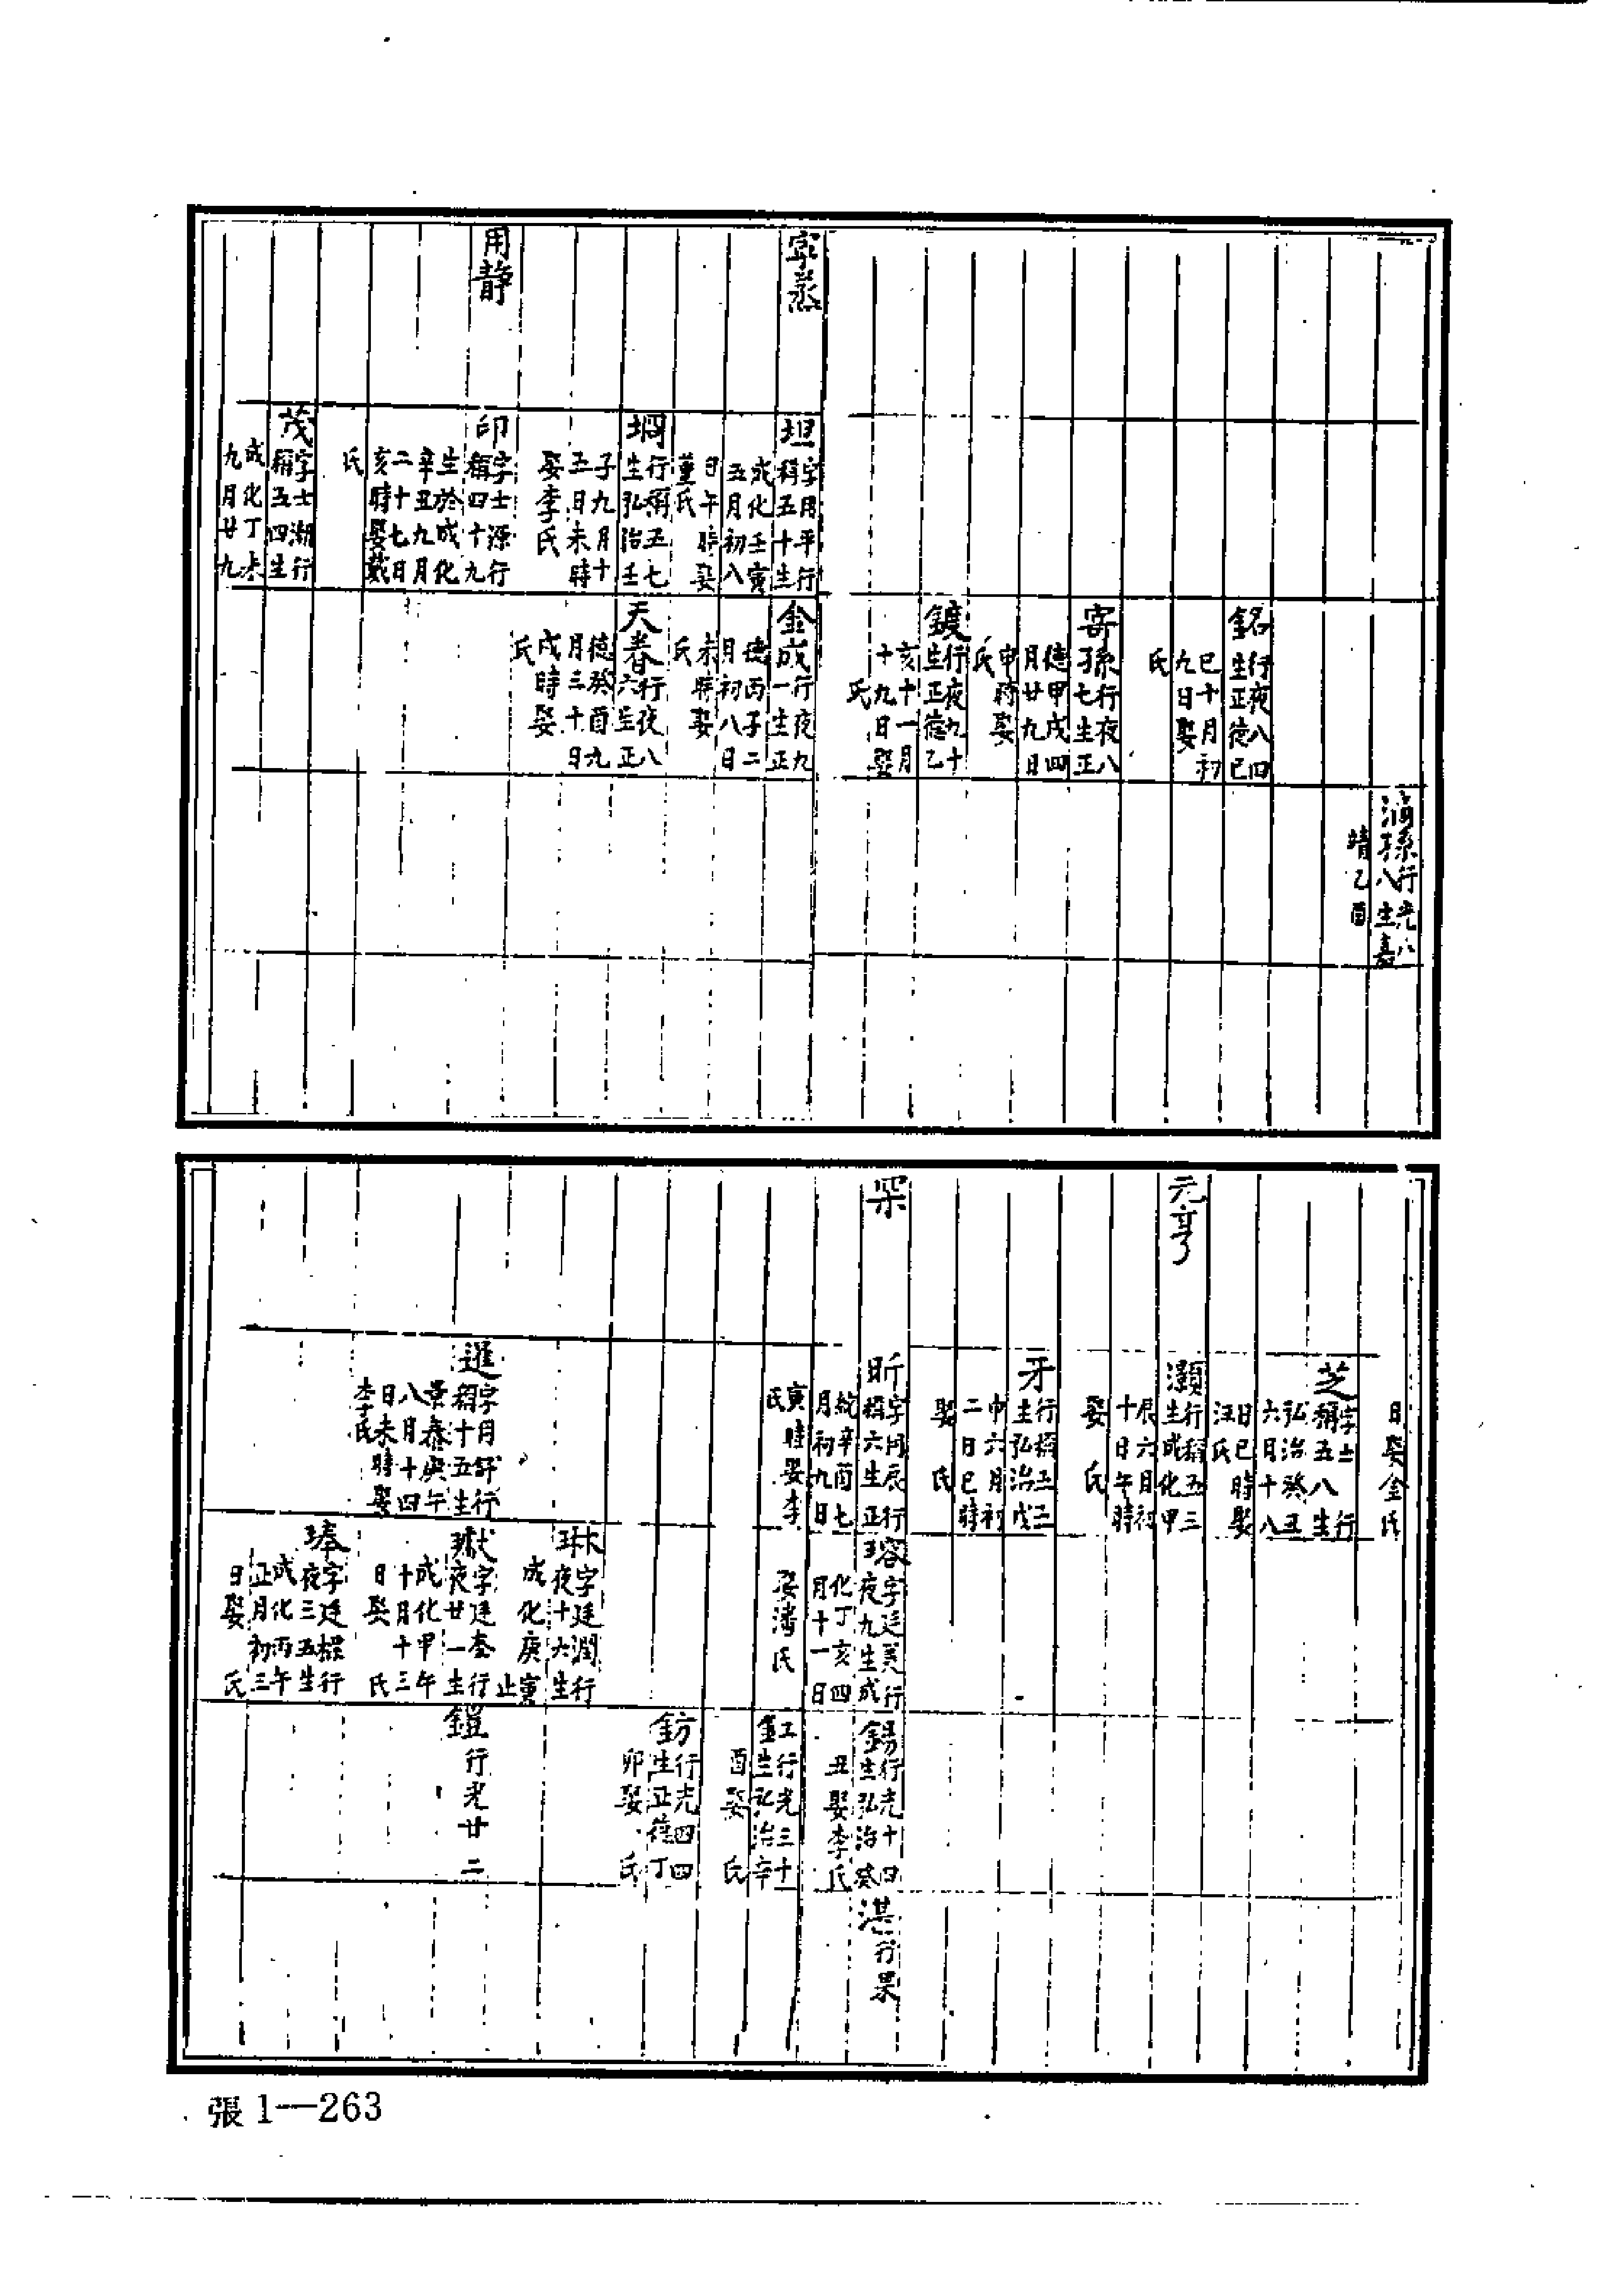 寧烝
用靜
坦
字用平行
稱五十生
成化壬寅
五月初八
日午時娶
董氏
堈
行稱五七
生弘治壬
子九月十
五日未時
娶李氏
印
字士源行
稱四十九
生於成化
辛丑九月
二十七日
亥時娶戴
氏
茂
字士潮行
稱五四生
成化丁未
九月廿九
銘
行夜八四
生正德己
巳十月初
九日娶
氏
寄孫
行夜八
七生正
德甲戌四
月廿九日
申時娶
氏
鍍
行夜九十
生正德乙
亥十一月
十九日娶
氏
金成
行夜九
一生正
德丙子二
月初八日
未時娶
氏
天春
行夜八
六生正
德癸酉九
月三十日
戌時娶
氏
孫
行光八
八生嘉
靖乙酉
元亨
罙
日娶金氏
芝
字士 行
稱五八生
弘治癸丑
六月十八
日巳時娶
汪氏
灝
行稱五三
生成化甲
辰六月初
十日午時
娶 氏
牙
行稱五三
生弘治戊
申六月初
二日巳時
娶 氏
昕
字同辰行
稱六生正
統辛酉七
月初九日
寅時娶李
氏
暹
字用舒行
稱十五生
景泰庚午
八月十四
日未時娶
李氏
瑢
字廷美行
夜九生成
化丁亥四
月十一日
娶潘氏
琳
字廷潤行
夜十六生
成化庚寅
止
字廷奎行
夜廿一生
成化甲午
十月十三
日娶 氏
琫
字廷樑行
夜三五生
成化丙午
正月初三
日娶 氏
錫
行光十四
生弘治癸
丑娶李氏
釭
行光三十
生弘治辛
酉娶 氏
鈁
行光四四
生正德丁
卯娶 氏
鎧
行光廿二
湛
行果
張1—263